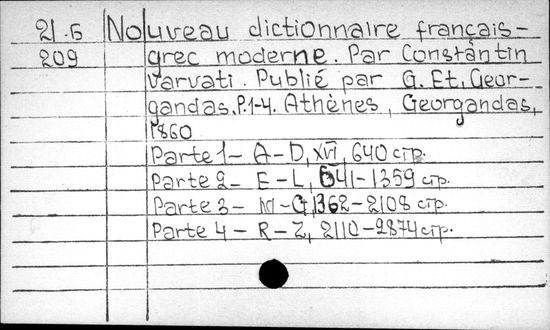 21.5 Nouveau dictionnaire français-
209 grec moderne. Par Constantin
Varvati. Publié par G. Et. Geor-
gandas. P.1-4. Athènes, Georgandas,
1860
Parte 1- A-D, XVI, 640 стр.
Parte 2- E-L, 641-1359 стр.
Parte 3- M-Q, 1362-2108 стр.
Parte 4- R-Z, 2110-2874 стр.